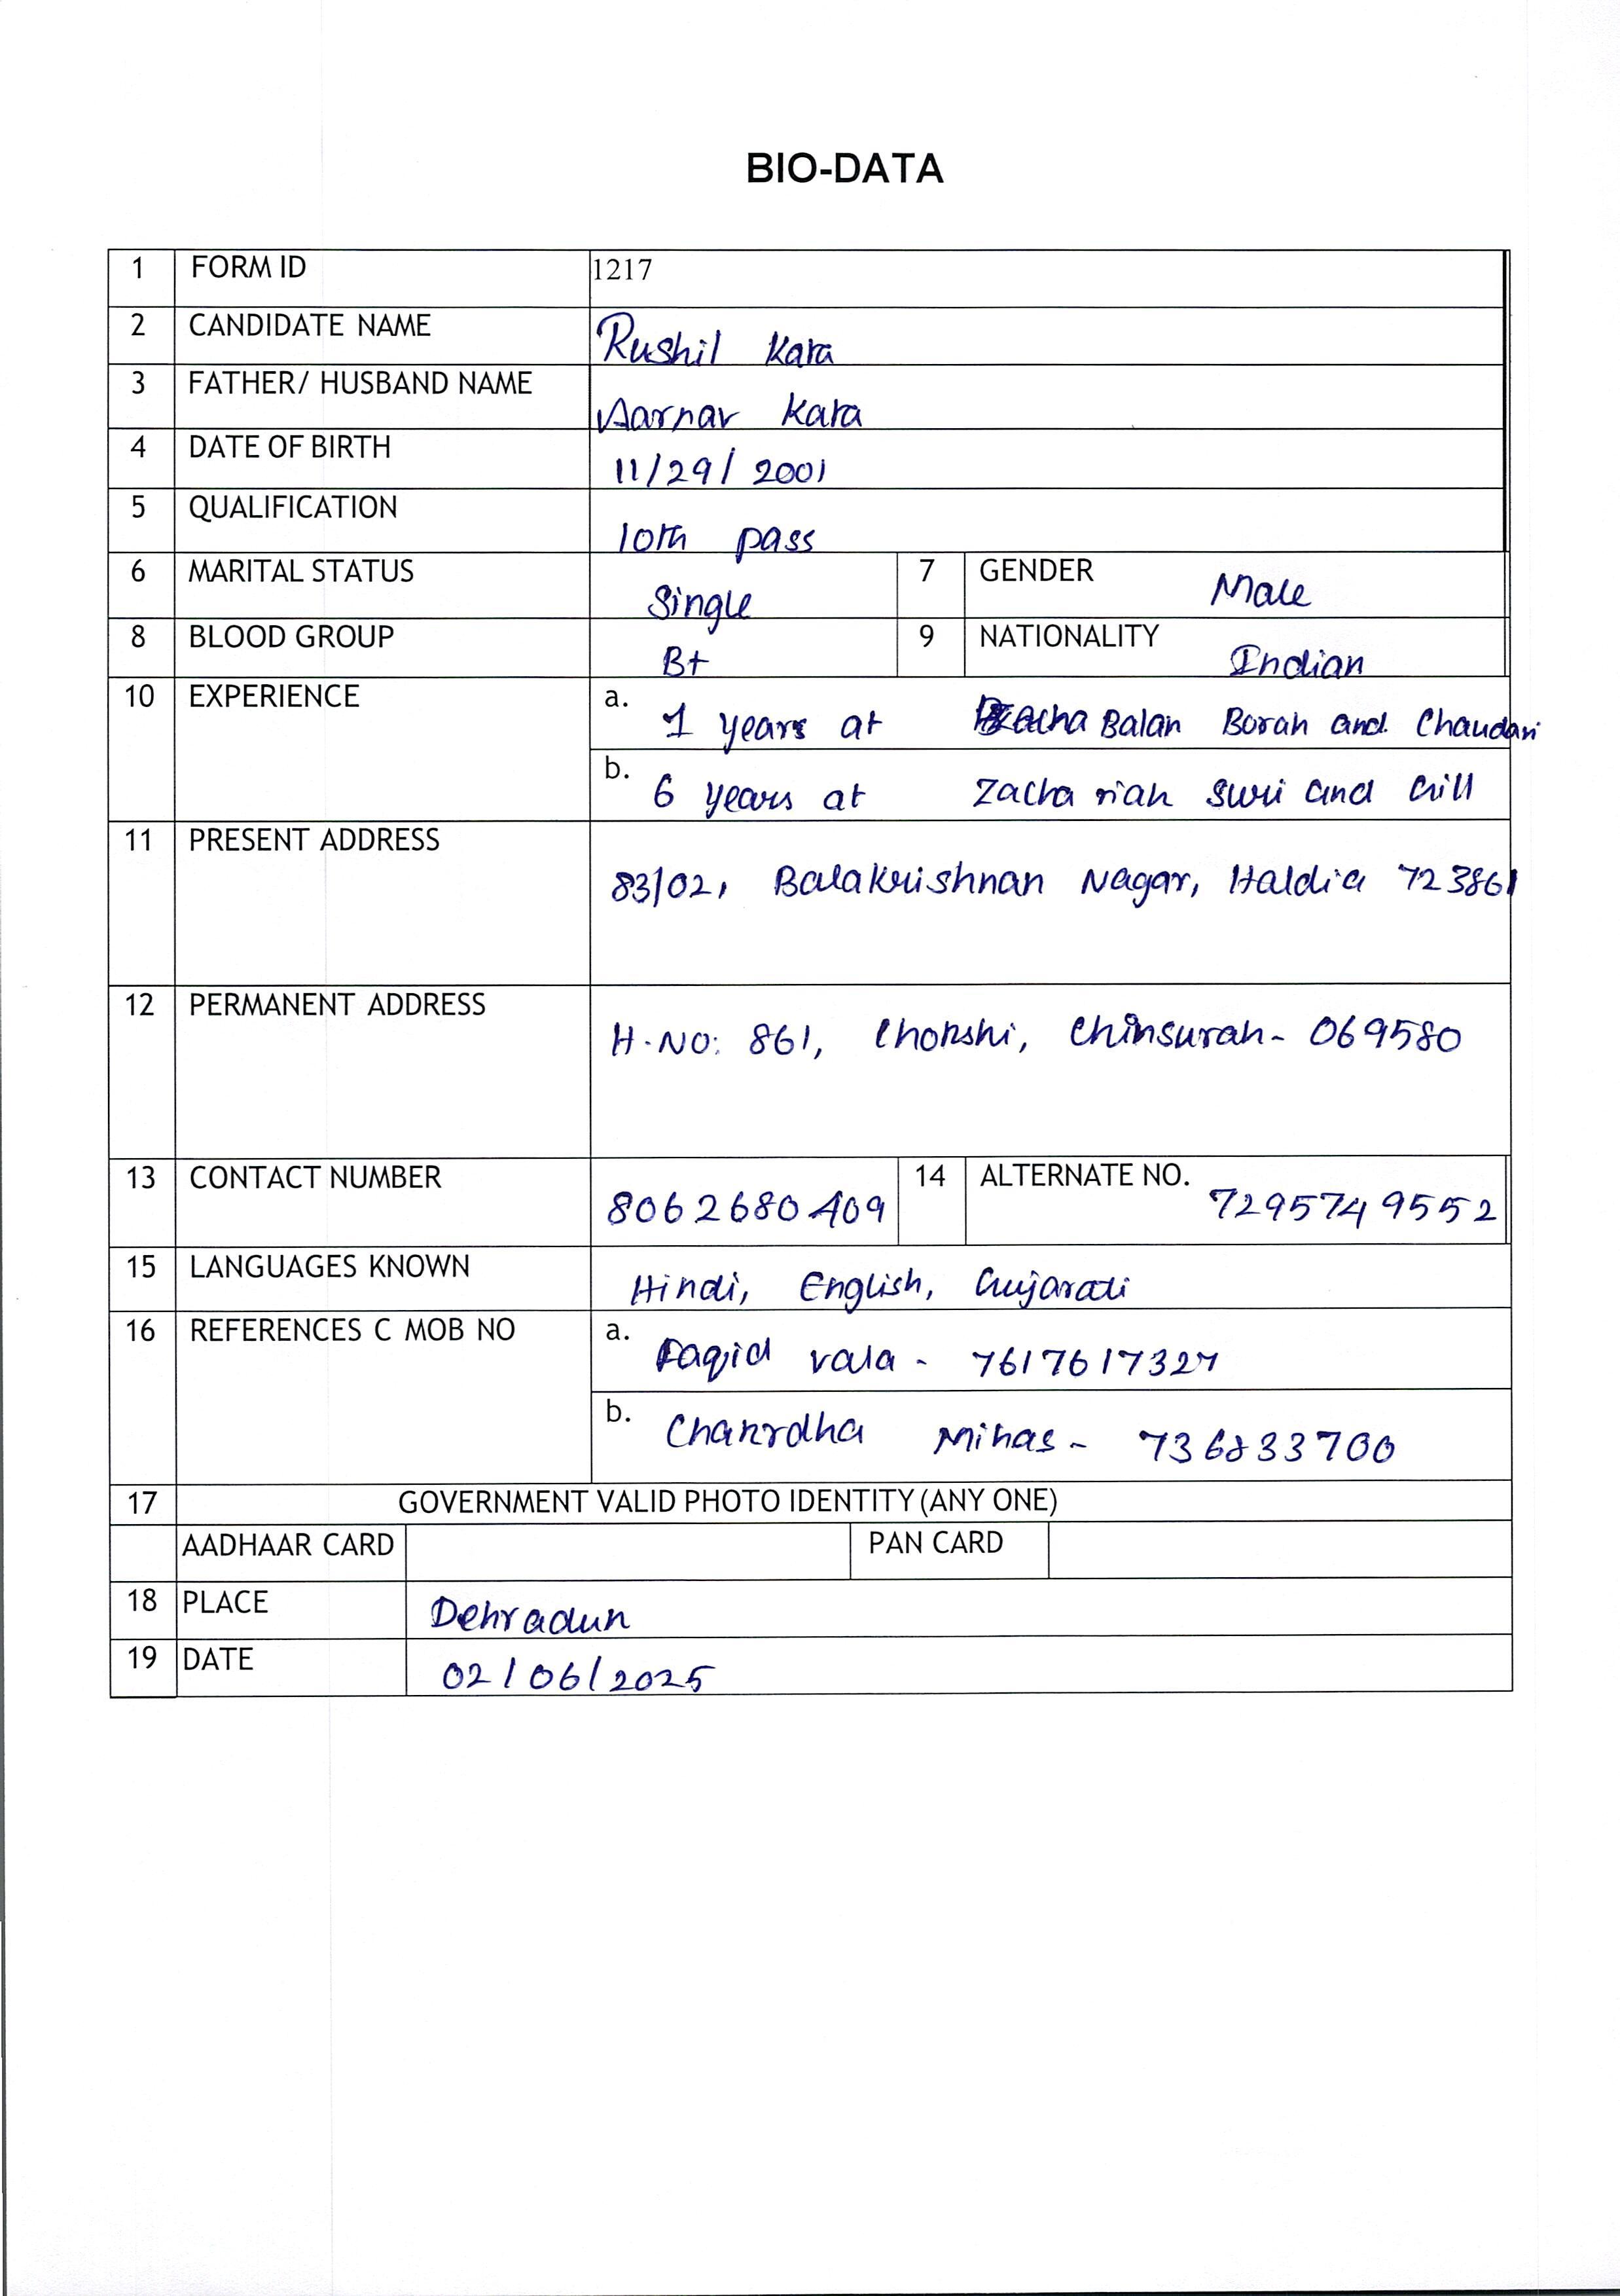 BIO-DATA
1 FORM ID 1217
2 CANDIDATE NAME Rushil Kara
3 FATHER/ HUSBAND NAME Aarnav Kara
4 DATE OF BIRTH 11/29/2001
5 QUALIFICATION 10th pass
6 MARITAL STATUS Single 7 GENDER Male
8 BLOOD GROUP B+ 9 NATIONALITY Indian
10 EXPERIENCE a. 1 years at Balan Borah and Chaudari
b. 6 years at Zachariah Suri and Gill
11 PRESENT ADDRESS
83/02, Balakrishnan Nagar, Haldia 723861
12 PERMANENT ADDRESS
H.NO: 861, Chokshi, Chinsurah- 069580
13 CONTACT NUMBER 8062680409 14 ALTERNATE NO. 7295749552
15 LANGUAGES KNOWN Hindi, English, Gujarati
16 REFERENCES C MOB NO a. vala - 7617617327
b. Mihas - 736833700
17 GOVERNMENT VALID PHOTO IDENTITY (ANY ONE)
AADHAAR CARD PAN CARD
18 PLACE Dehradun
19 DATE 02/06/2025